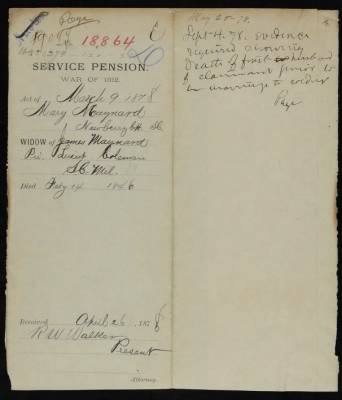 Page
18,864
SERVICE PENSION.
WAR OF 1812.
Act of March 9, 1878
Mary Maynard
Newburgh
WIDOW of James Maynard
Pri. Lieut Coleman
S.C. Mil.
Died Feby 14 1846
Received April 26, 1878
R W Walker
Present
Attorney.
May 28-78.
Sept 4. 78. evidence
required showing
death of first husband
of claimant prior to
her marriage to soldier
Page